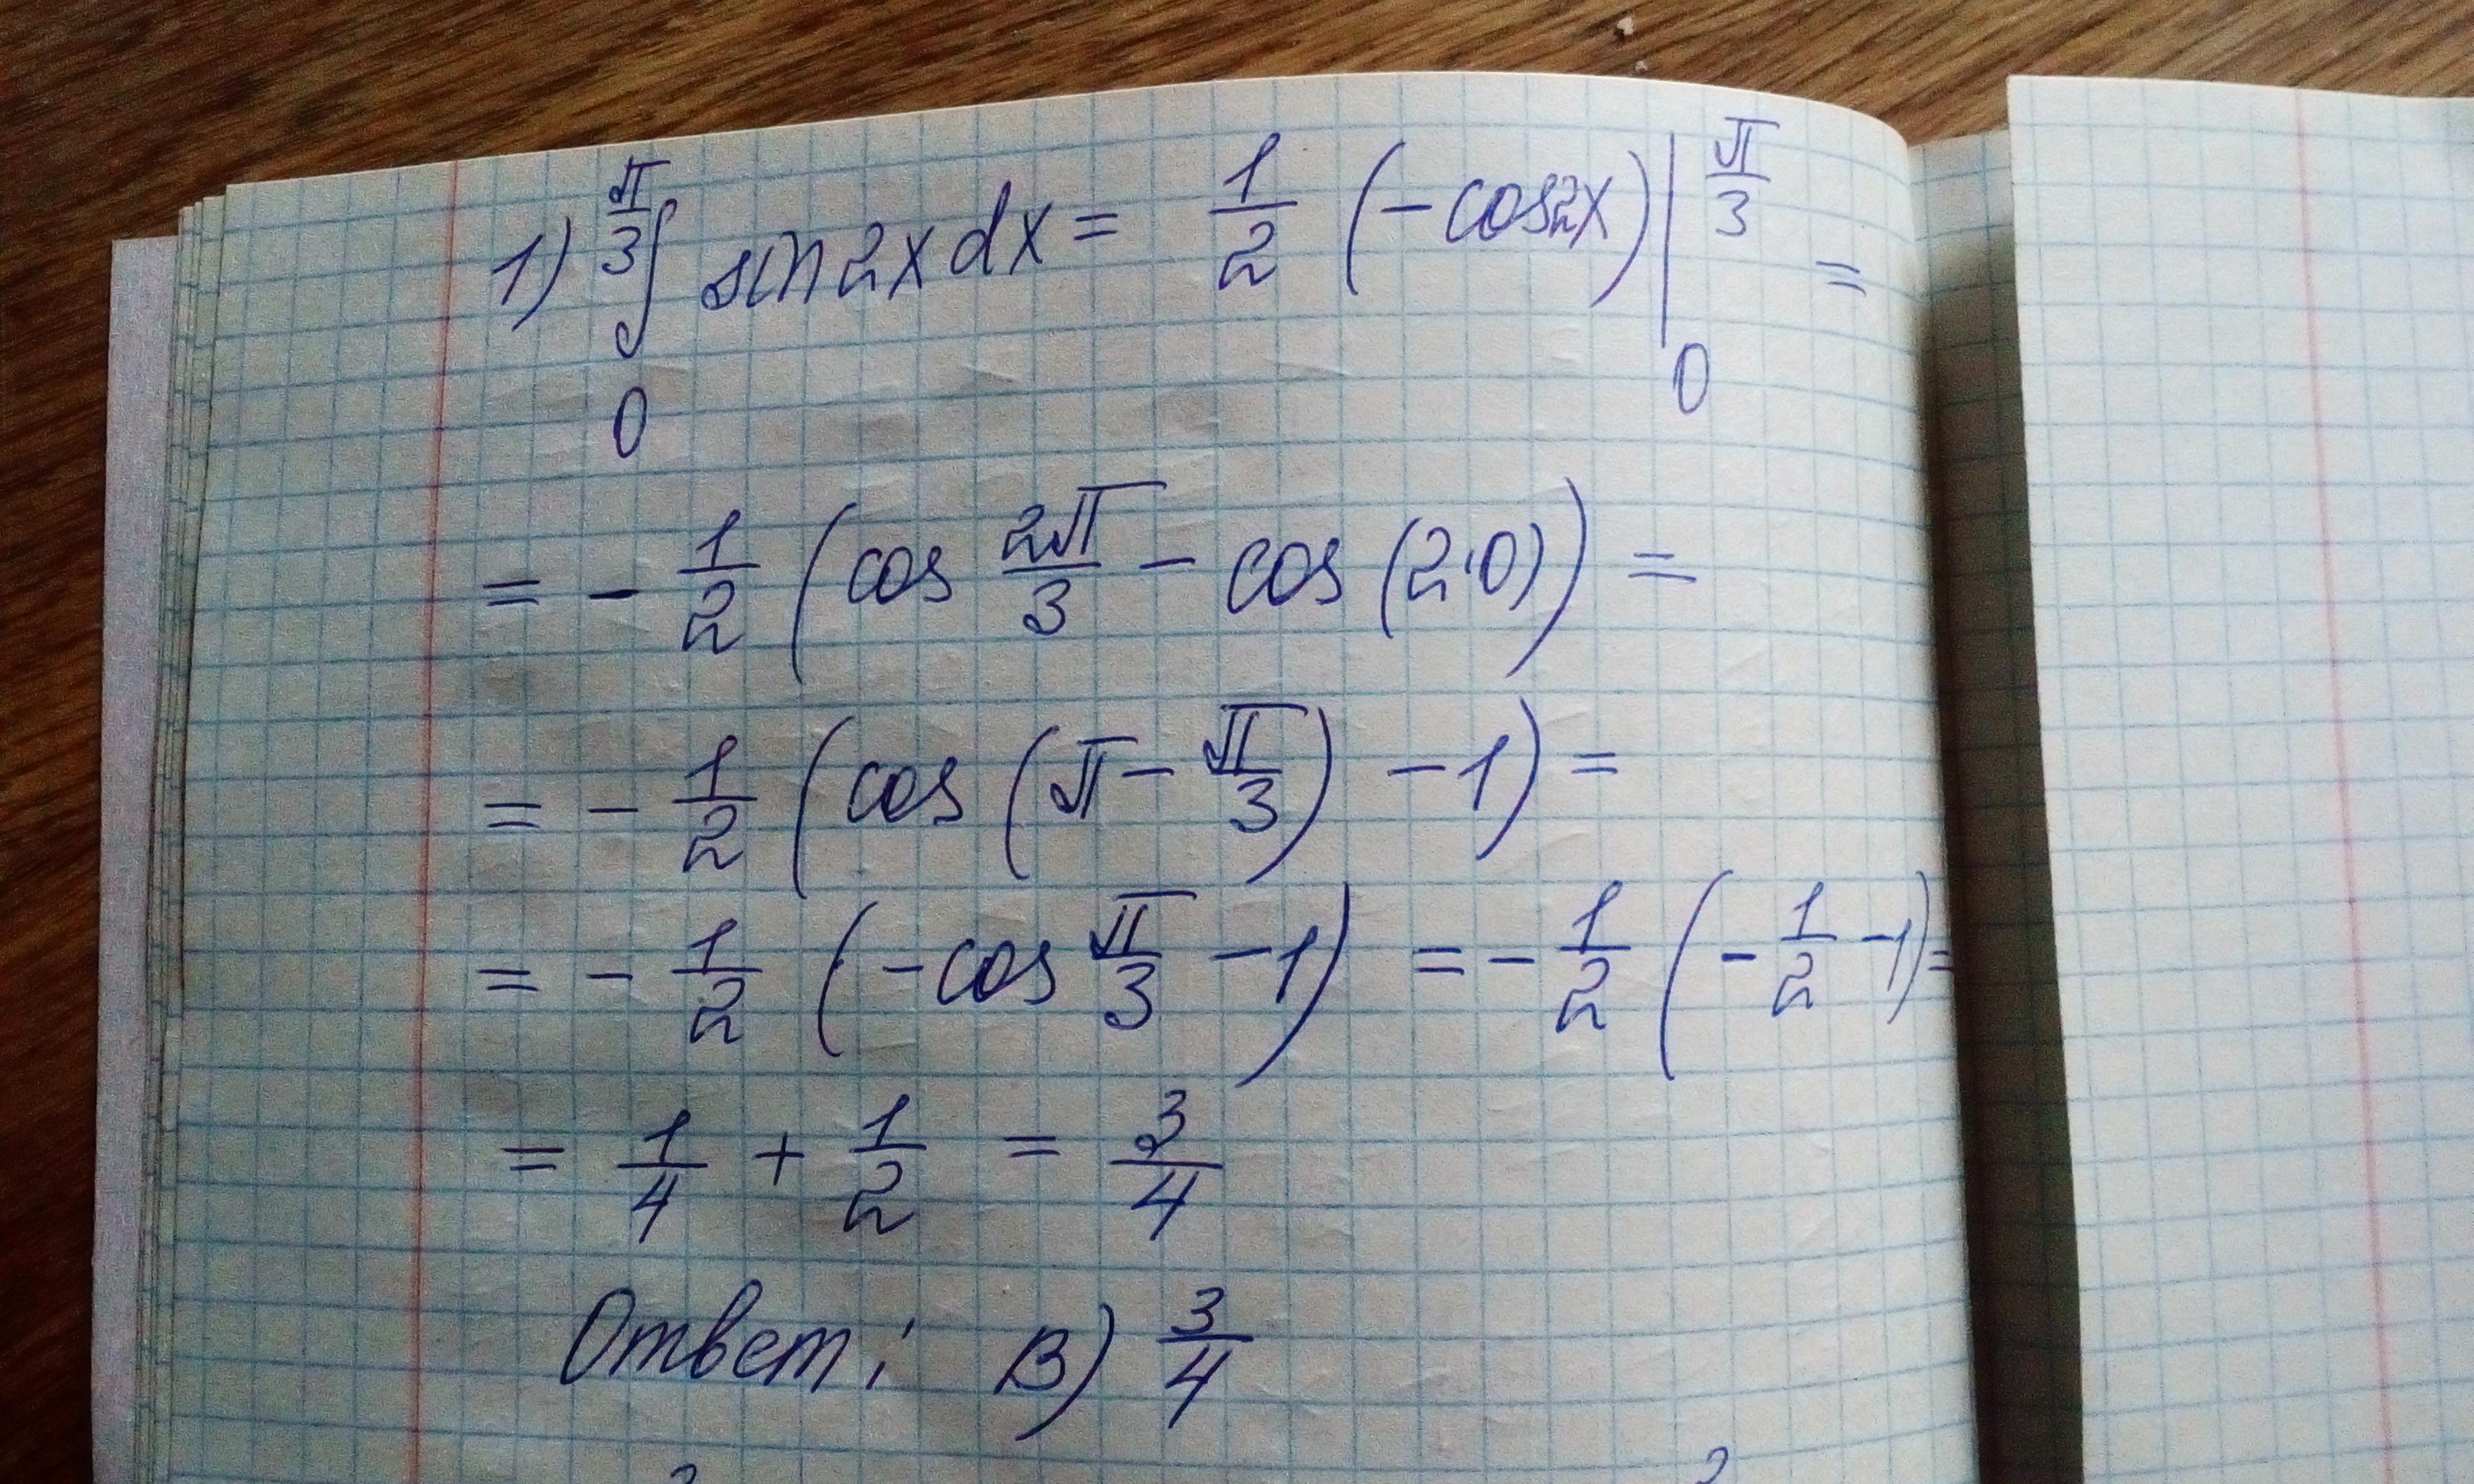 1) ∫₀^(π/3) sin2xdx = 1/2 (-cos2x)|₀^(π/3) =
= - 1/2 (cos 2π/3 - cos (2·0)) =
= - 1/2 (cos (π - π/3) - 1) =
= - 1/2 (- cos π/3 - 1) = - 1/2 (- 1/2 - 1) =
= 1/4 + 1/2 = 3/4
Ответ: В) 3/4